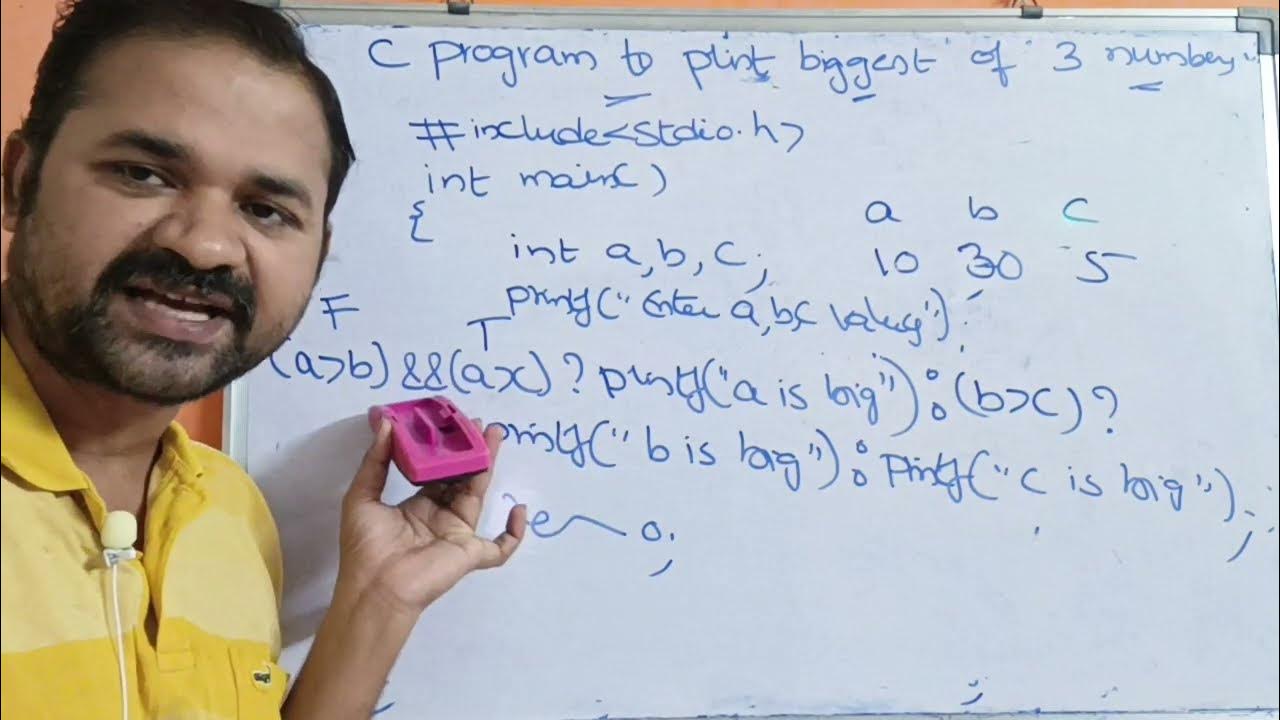 C program to print biggest of 3 numbers
#include<stdio.h>
int main()
{
a b c
int a,b,c; 10 30 5
printf("Enter a,b,c values");
F T
(a>b)&&(a>c)?printf("a is big"):(b>c)?
printf("b is big"):printf("c is big");
0;